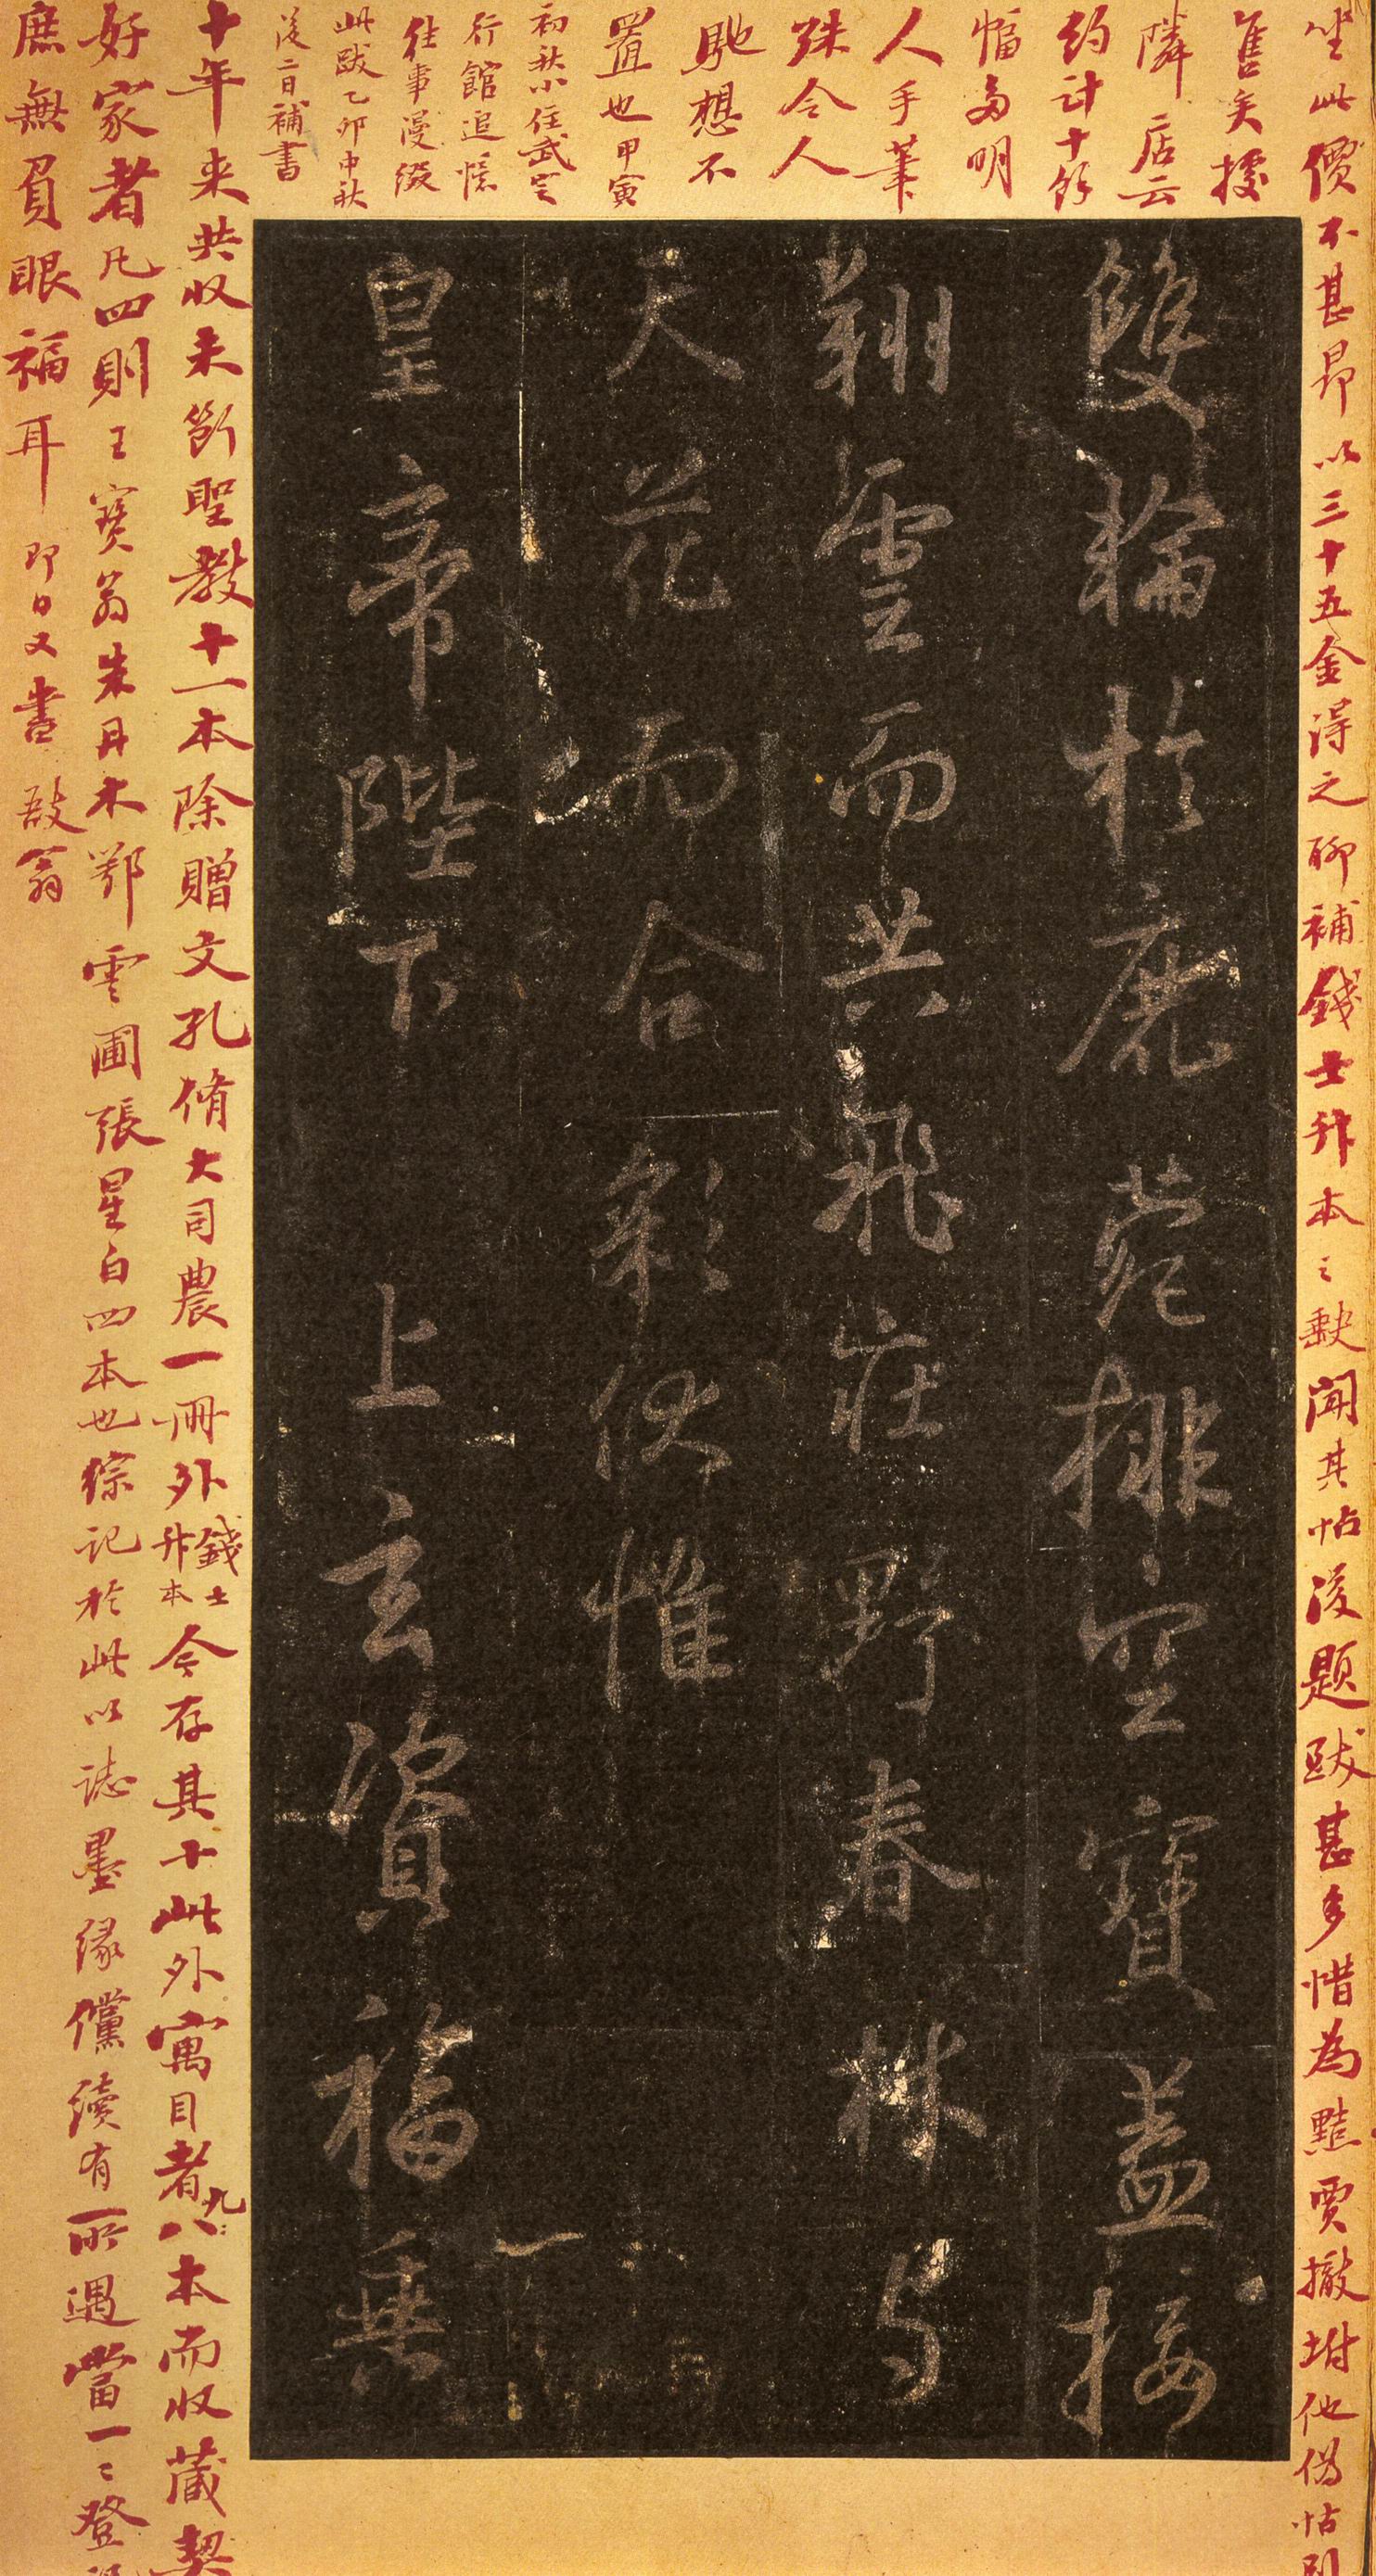 坐此價不甚昂以三十五金得之聊補錢士升本之缺聞其帖後題跋甚多惜為黠賈撤坿他偽帖別
售矣據
隣店云
約計十餘
幅多明
人手筆
殊令人
馳想不
置也甲寅
初秋小住武定
行館追憶
往事漫綴
此跋乙卯中秋
後二日補書
雙輪於鹿菀排空寶蓋接
翔雲而共飛莊野春林与
天花而合彩伏惟
皇帝陛下 上玄資福垂
十年来共收未斷聖教十一本除贈文孔脩大司農一冊外錢士升本今存其十此外寓目者九八本而收藏契
好家者凡四則王寶翁朱丹木鄂雲圃張星白四本也綜記於此以誌墨緣儻續有所遇當一〻登
庶無負眼福耳即日又書敔翁